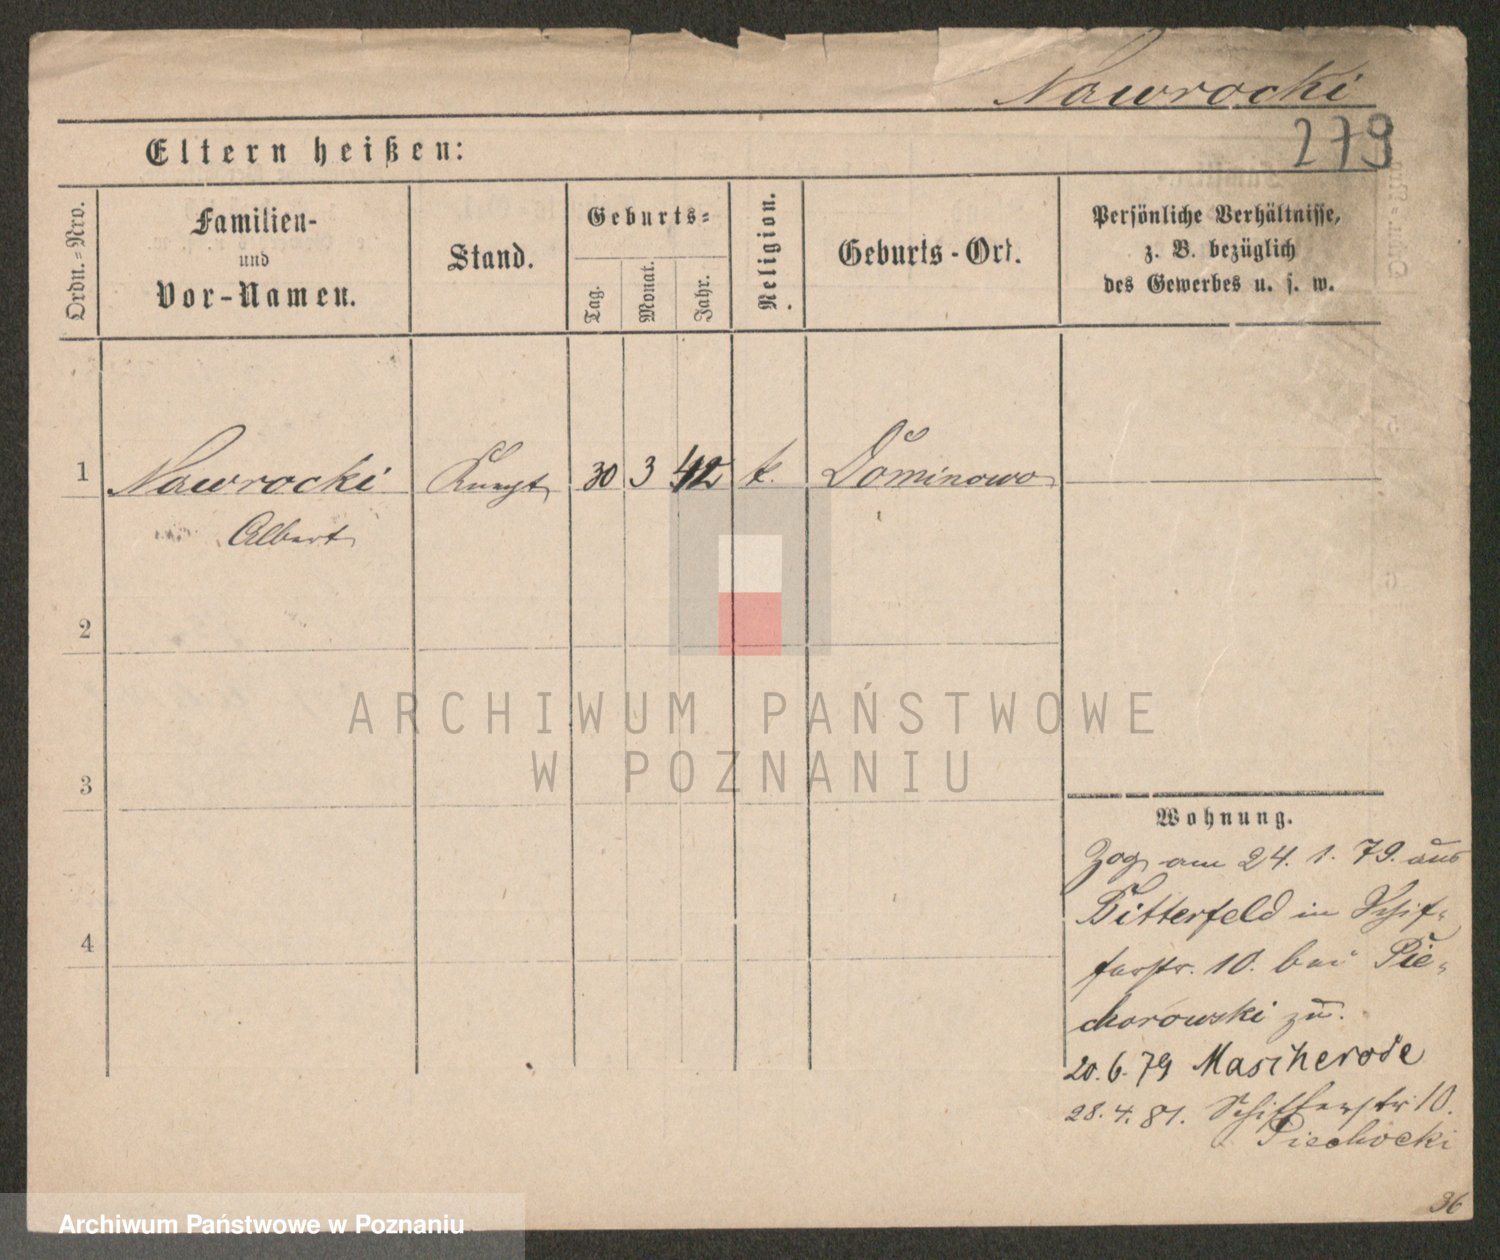 Nawrocki
279
Eltern heißen:
Ordn.=Nro.
Familien-
und
Vor-Namen.
Stand.
Geburts=
Tag.
Monat.
Jahr.
Religion.
Geburts-Ort.
Persönliche Verhältnisse,
z. B. bezüglich
des Gewerbes u. s. w.
1 Nawrocki Knecht 30 3 42 k. Dominowo
Albert
2
3
4
ARCHIWUM PAŃSTWOWE
W POZNANIU
Wohnung.
Zog am 24. 1. 79. aus
Bitterfeld in Schif-
ferstr. 10. bei Pie-
chorowski zu.
20.6.79 Mascherode
28.4.81. Schifferstr 10.
Piechocki
36
Archiwum Państwowe w Poznaniu